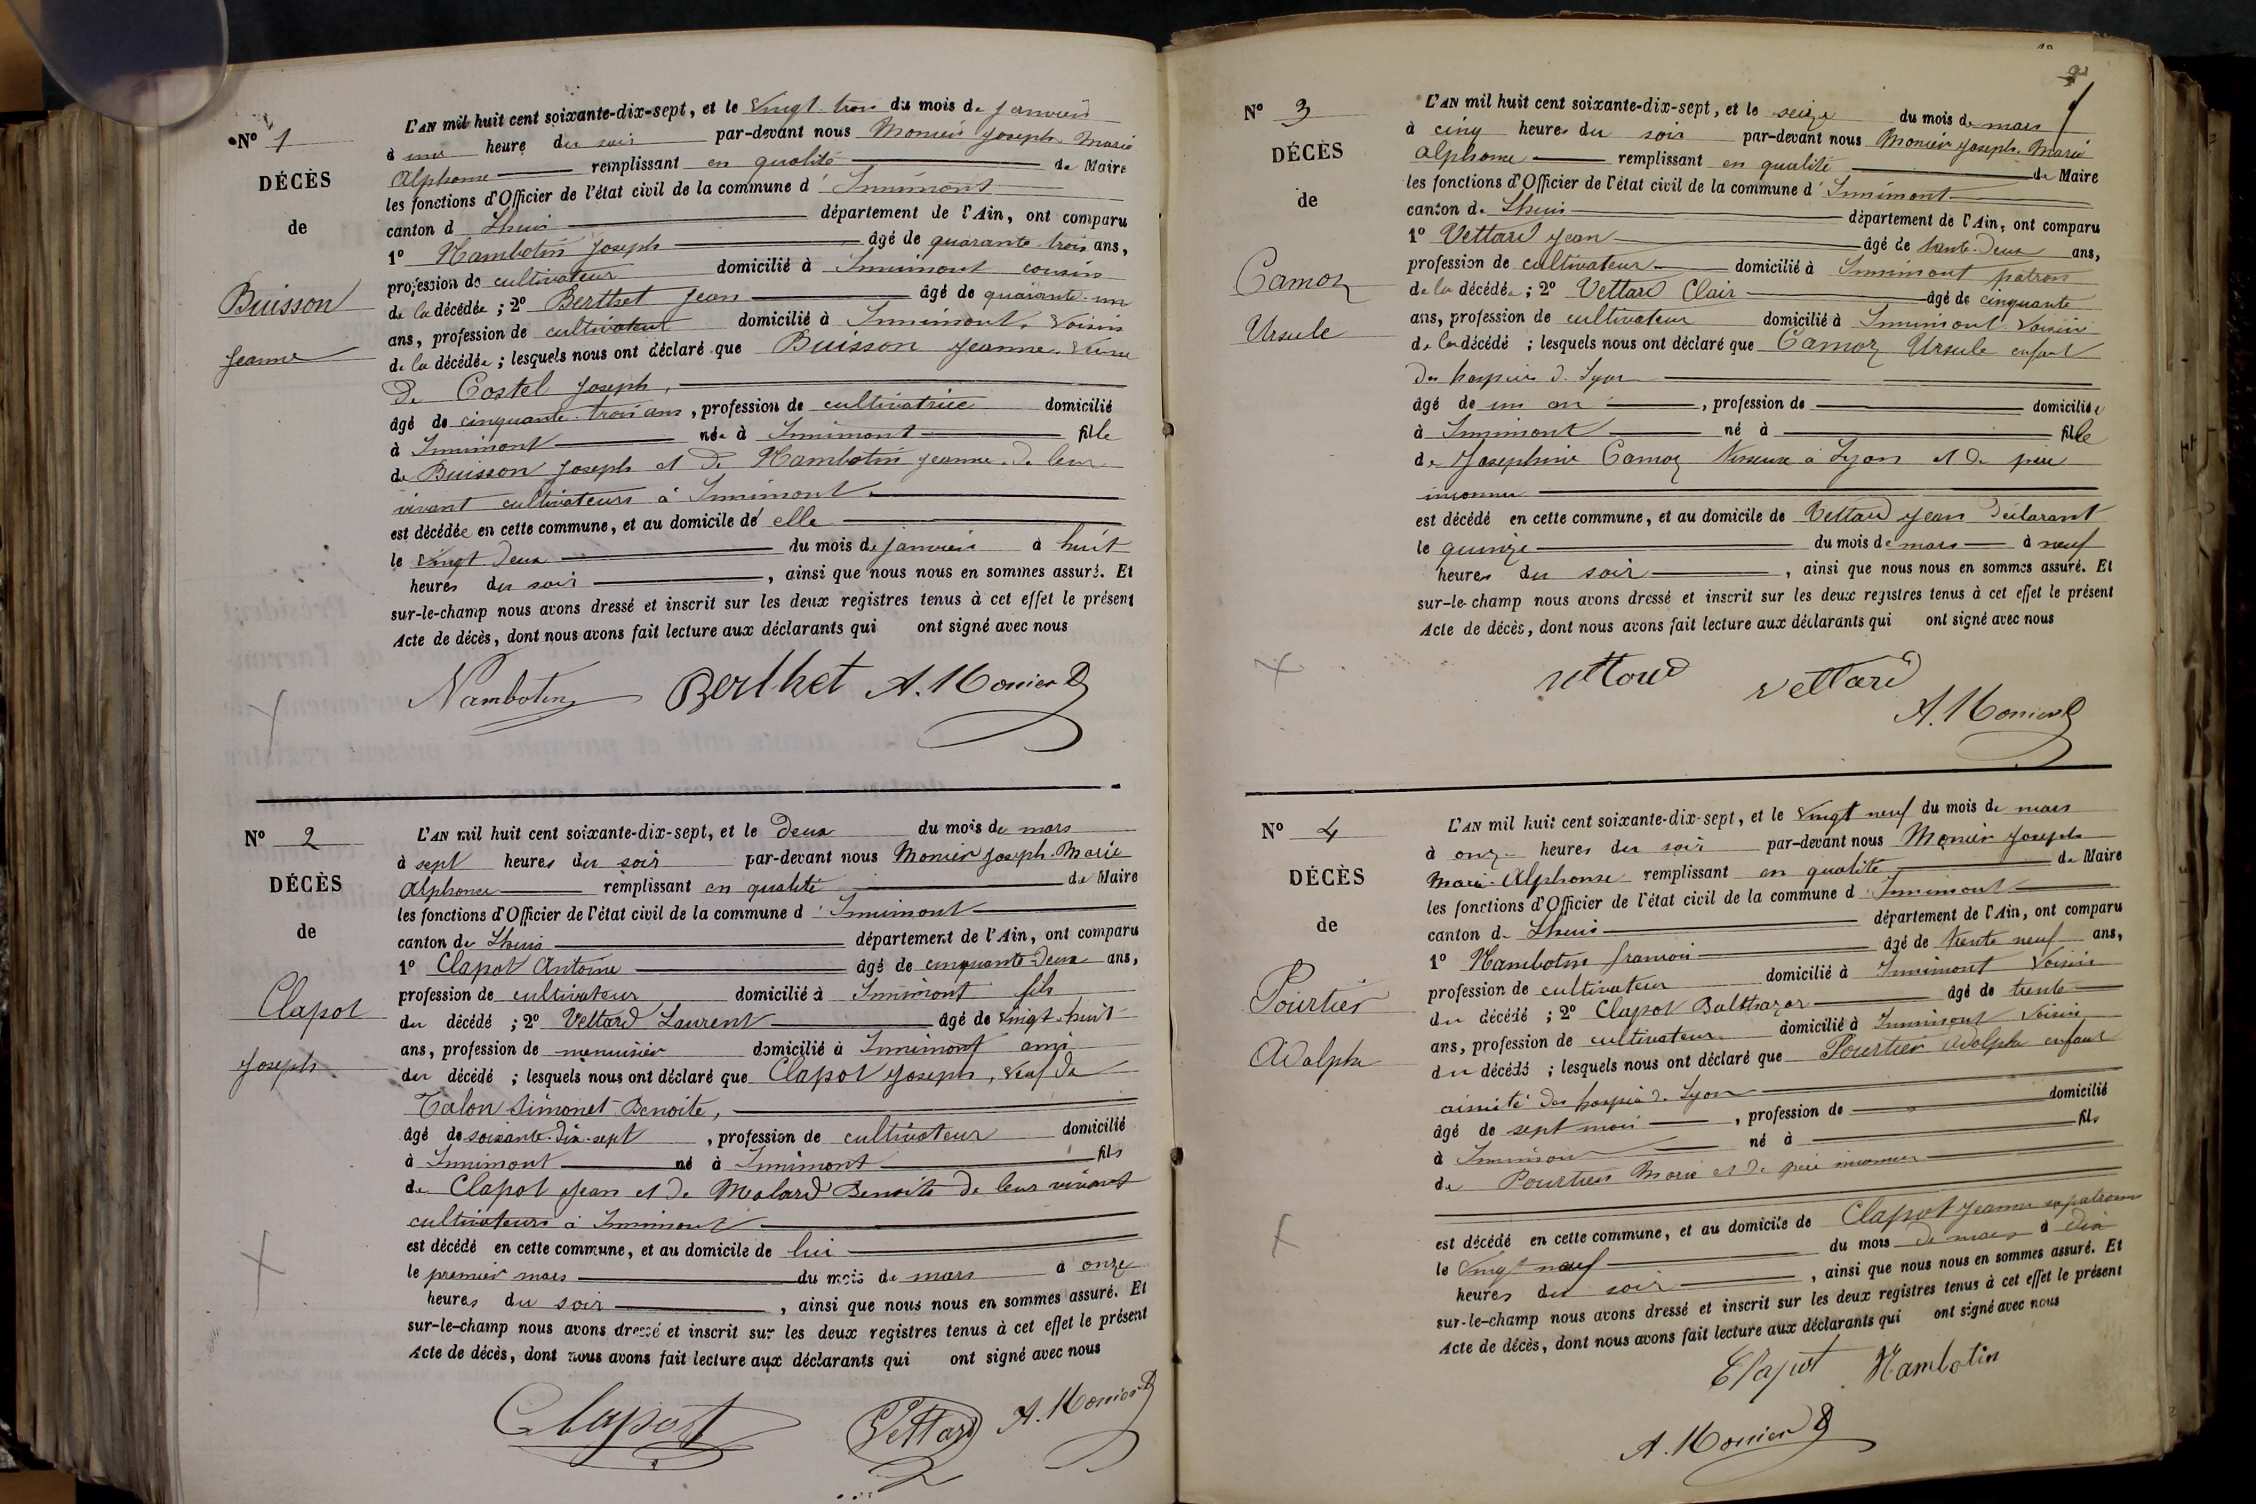 N° 1
DÉCÈS
de
Buisson
Jeanne
L'AN mil huit cent soixante-dix-sept, et le vingt trois du mois de janvier
à une heure du soir par-devant nous Monier Joseph Marie
Alphonse remplissant en qualité de Maire
les fonctions d'Officier de l'état civil de la commune d'Innimont
canton d Lhuis département de l'Ain, ont comparu
1° Nambotin Joseph âgé de quarante trois ans,
profession de cultivateur domicilié à Innimont cousin
de la décédée ; 2° Berthet Jean âgé de quarante un
ans, profession de cultivateur domicilié à Innimont, voisin
de la décédée ; lesquels nous ont déclaré que Buisson Jeanne, veuve
De Costel Joseph,
âgé de cinquante trois ans, profession de cultivatrice domicilié
à Innimont née à Innimont fille
de Buisson Joseph et de Nambotin Jeanne de leur
vivant cultivateurs à Innimont
est décédée en cette commune, et au domicile de elle
le vingt deux du mois de janvier à huit
heures du soir , ainsi que nous nous en sommes assuré. Et
sur-le-champ nous avons dressé et inscrit sur les deux registres tenus à cet effet le présent
Acte de décès, dont nous avons fait lecture aux déclarants qui ont signé avec nous
Nambotin Berthet A. Monier
N° 2
DÉCÈS
de
Clapot
Joseph
L'AN mil huit cent soixante-dix-sept, et le deux du mois de mars
à sept heures du soir par-devant nous Monier Joseph Marie
Alphonse remplissant en qualité de Maire
les fonctions d'Officier de l'état civil de la commune d'Innimont
canton de Lhuis département de l'Ain, ont comparu
1° Clapot Antoine âgé de cinquante deux ans,
profession de cultivateur domicilié à Innimont fils
du décédé ; 2° Vettard Laurent âgé de vingt-huit
ans, profession de menuisier domicilié à Innimont ami
du décédé ; lesquels nous ont déclaré que Clapot Joseph, veuf de
Talon Simonet Benoite,
âgé de soixante-dix-sept , profession de cultivateur domicilié
à Innimont né à Innimont fils
de Clapot Jean et de Molard Benoite de leur vivant
cultivateurs à Innimont
est décédé en cette commune, et au domicile de lui
le premier mars du mois de mars à onze
heures du soir , ainsi que nous nous en sommes assuré. Et
sur-le-champ nous avons dressé et inscrit sur les deux registres tenus à cet effet le présent
Acte de décès, dont nous avons fait lecture aux déclarants qui ont signé avec nous
Clapot Vettard A. Monier
N° 3
DÉCÈS
de
Camoz
Ursule
L'AN mil huit cent soixante-dix-sept, et le seize du mois de mars
à cinq heures du soir par-devant nous Monier Joseph Marie
Alphonse remplissant en qualité de Maire
les fonctions d'Officier de l'état civil de la commune d'Innimont
canton de Lhuis département de l'Ain, ont comparu
1° Vettard Jean âgé de trente-deux ans,
profession de cultivateur domicilié à Innimont patron
de la décédée ; 2° Vettard Clair âgé de cinquante
ans, profession de cultivateur domicilié à Innimont voisin
de la décédé ; lesquels nous ont déclaré que Camoz Ursule enfant
des hospices de Lyon
âgé de un an , profession de domiciliée
à Innimont né à fille
de Josephine Camoz Tisseuse à Lyon et de père
inconnu
est décédé en cette commune, et au domicile de Vettard Jean déclarant
le quinze du mois de mars à neuf
heures du soir , ainsi que nous nous en sommes assuré. Et
sur-le-champ nous avons dressé et inscrit sur les deux registres tenus à cet effet le présent
Acte de décès, dont nous avons fait lecture aux déclarants qui ont signé avec nous
Vettard Vettard
A. Monier
N° 4
DÉCÈS
de
Pourtier
Adolphe
L'AN mil huit cent soixante-dix-sept, et le vingt neuf du mois de mars
à onze heures du soir par-devant nous Monier Joseph
Marie Alphonse remplissant en qualité de Maire
les fonctions d'Officier de l'état civil de la commune d'Innimont
canton de Lhuis département de l'Ain, ont comparu
1° Nambotin francois âgé de trente neuf ans,
profession de cultivateur domicilié à Innimont voisin
du décédé ; 2° Clapot Balthazar âgé de trente
ans, profession de cultivateur domicilié à Innimont voisin
du décédé ; lesquels nous ont déclaré que Pourtier Adolphe enfant
assisté des hospices de Lyon
âgé de sept mois , profession de domicilié
à Innimont né à fils
de Pourtier Marie et de père inconnu
est décédé en cette commune, et au domicile de Clapot Jeanne sa patronne
le vingt neuf du mois de mars à dix
heures du soir , ainsi que nous nous en sommes assuré. Et
sur-le-champ nous avons dressé et inscrit sur les deux registres tenus à cet effet le présent
Acte de décès, dont nous avons fait lecture aux déclarants qui ont signé avec nous
Clapot Nambotin
A. Monier